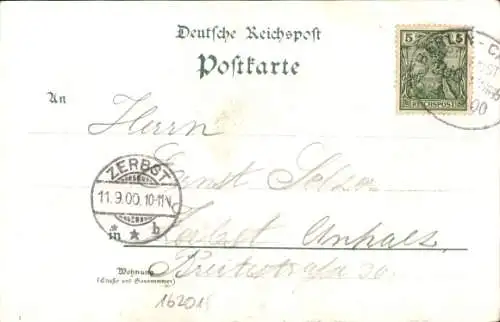 Deutsche Reichspost
Postkarte
5 5
REICHSPOST
BERLIN - CA
An
Herrn
Ernst
ZERBST
11.9.00. 10-11V.
* b
in Zerbst Anhalt
Breitestraße 30.
Wohnung
(Straße und Hausnummer)
16201